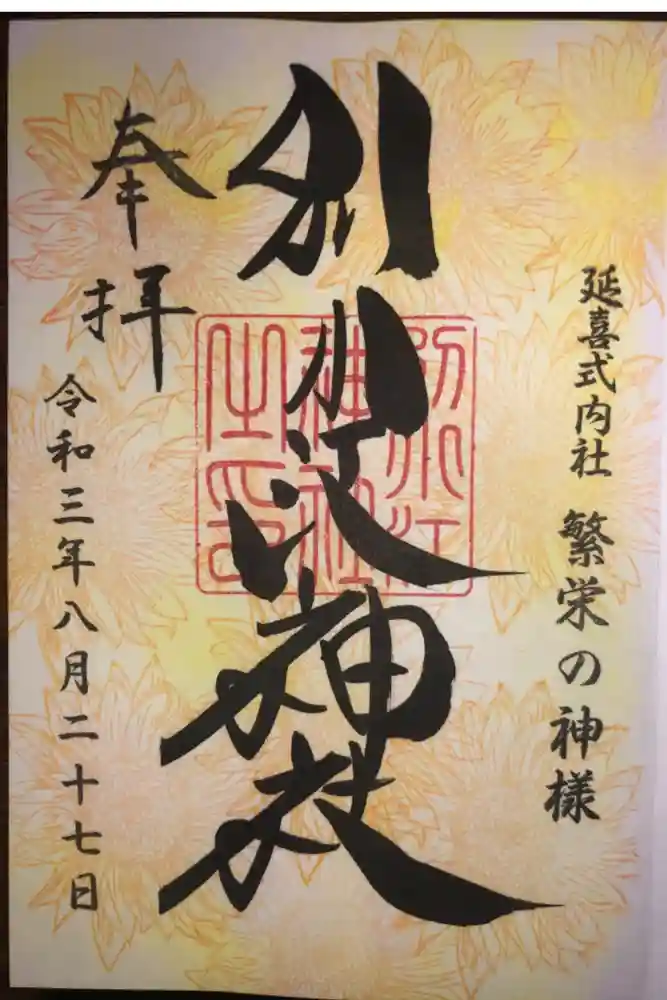 延喜式内社 繁栄の神様
別小江神社
別小江
神社
之印
奉拝
令和三年八月二十七日